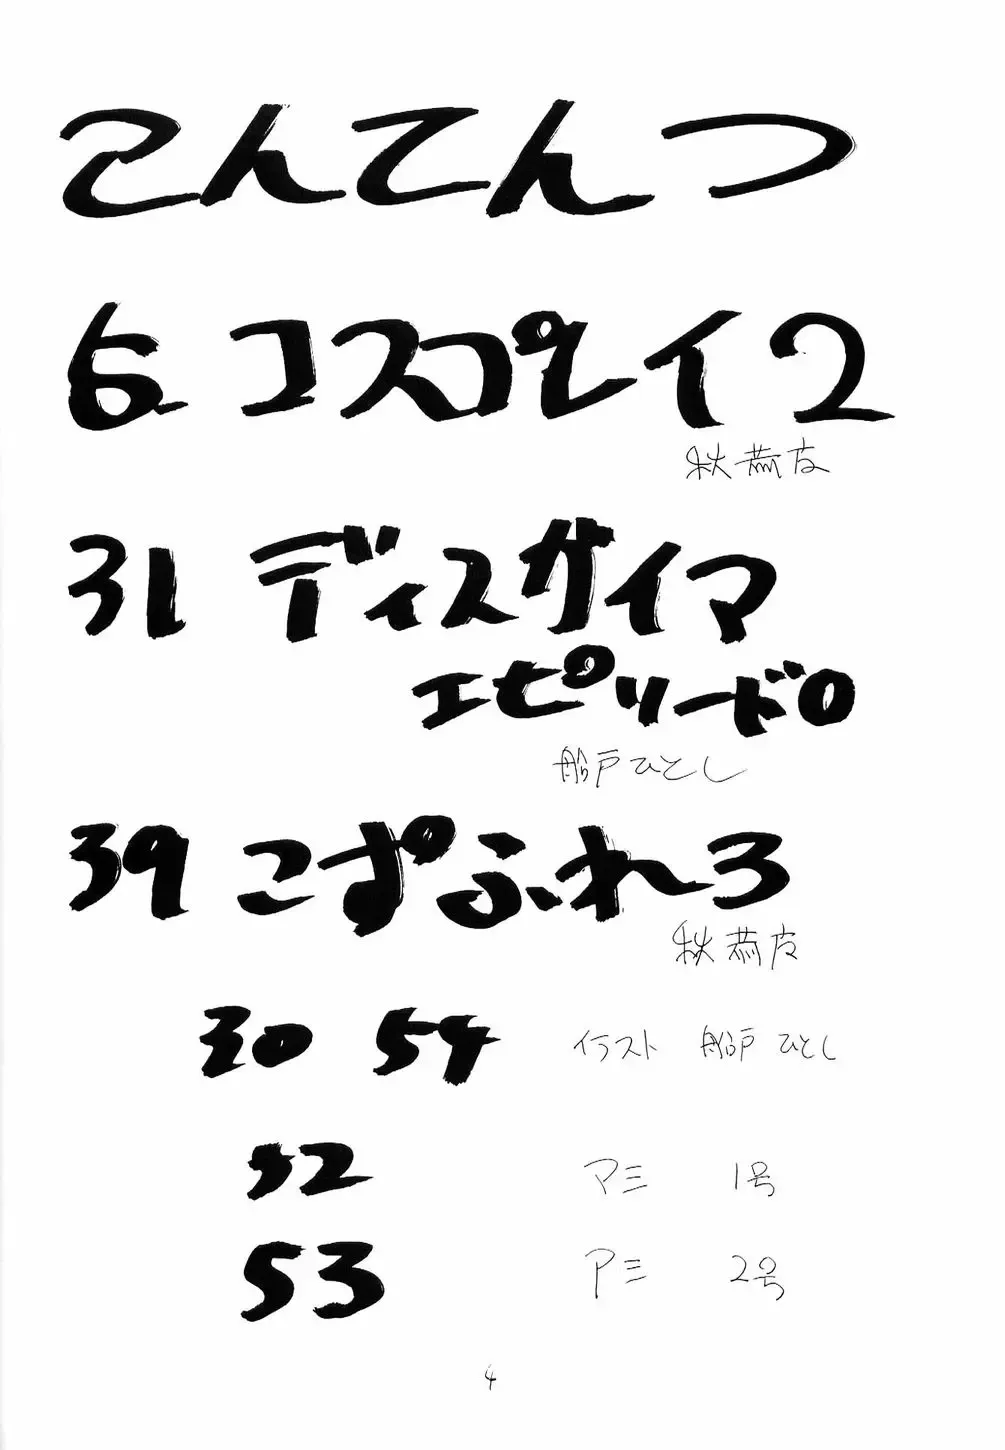 こんてんつ
5 コスプレイ2
秋恭皮
31 ディスサイマ
エピソード0
船戸ひとし
39 こすぷれ3
秋恭皮
30 54 イラスト 船戸ひとし
52 マミ 1号
53 アミ 2号
4